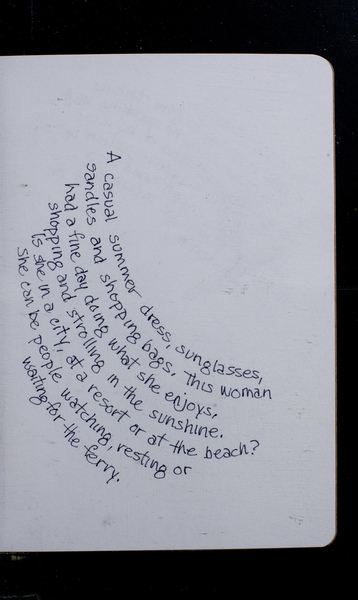 A casual summer dress, sunglasses,
sandles and shopping bags, this woman
had a fine day doing what she enjoys,
shopping and strolling in the sunshine.
Is she in a city, at a resort or at the beach?
She can be people watching, resting or
waiting for the ferry.